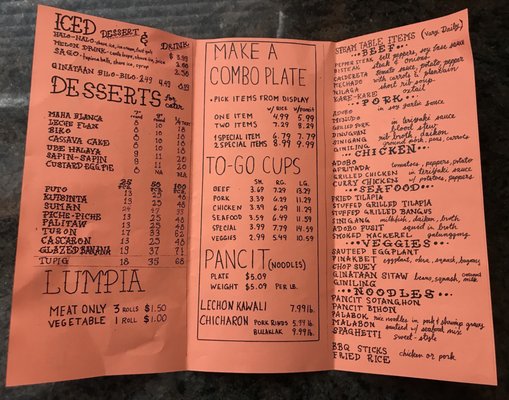 ICED DESSERT & DRINK
HALO-HALO- shave ice, ice cream, fruit, gels $ 3.99
MELON DRINK-
SAGO- tapioca balls, shave ice, syrup 2.50
GINATAAN BILO-BILO 2.49 4.49
DESSERTS
MAHA BLANCA 8 10 18
LECHE FLAN
BIKO
CASSAVA CAKE
UBE HALAYA
SAPIN-SAPIN
CUSTARD EGG PIE
PUTO 13 25 48
KUTSINTA 13 25 48
SUMAN
PICHE-PICHE 13 25 48
PALITAW 13 25 48
TURON 17 33 62
CASCARON 13 25 48
GLAZED BANANA 13 37 71
TUPIG 18 35 68
LUMPIA
MEAT ONLY 3 ROLLS $1.50
VEGETABLE 1 ROLL $1.00
MAKE A
COMBO PLATE
• PICK ITEMS FROM DISPLAY
W/ RICE W/ PANCIT
ONE ITEM 4.99 5.99
TWO ITEMS 7.29 8.29
1 SPECIAL ITEM 6.79 7.79
2 SPECIAL ITEMS 8.99 9.99
TO-GO CUPS
SM. RG. LG.
BEEF 3.69 7.29 13.29
PORK 3.39 6.49 11.29
CHICKEN 3.39 6.29 11.29
SEAFOOD 3.59 6.49 11.59
SPECIAL 3.99 7.79 14.59
VEGGIES 2.99 5.49 10.59
PANCIT (NOODLES)
PLATE $5.09
WEIGHT $5.09 PER LB.
LECHON KAWALI 7.99 lb.
CHICHARON PORK RINDS 5.99 lb
BULAKLAK 9.99 lb.
STEAM TABLE ITEMS (Vary Daily)
•••BEEF•••
PEPPER STEAK bell peppers, soy base sauce
BISTEAK steak & onions
CALDERETA tomato sauce, potato, pepper
MECHADO with carrots & plantain
NILAGA short rib soup
KARE-KARE oxtail
•••PORK•••
ADOBO in soy garlic sauce
MENUDO
GRILLED PORK in teriyaki sauce
DINUGUAN blood stew
SINIGANG broth, daikon
GINILING ground pork, peas, carrots
•••CHICKEN•••
ADOBO
AFRITADA tomatoes, peppers, potato
GRILLED CHICKEN in teriyaki sauce
CURRY CHICKEN potatoes, peppers
•••SEAFOOD•••
FRIED TILAPIA
STUFFED GRILLED TILAPIA
STUFFED GRILLED BANGUS
SINIGANG milkfish, daikon, broth
ADOBO PUSIT squid in broth
SMOKED MACKEREL galunggong
•••VEGGIES•••
SAUTEED EGGPLANT
PINAKBET eggplant, okra, squash, bagoong
CHOP SUEY
GINATAAN SITAW beans, squash, coconut milk
GINILING
•••NOODLES•••
PANCIT SOTANGHON
PANCIT BIHON
PALABOK rice noodles in pork & shrimp gravy
MALABON sauteed w/ seafood mix
SPAGHETTI sweet-style
BBQ STICKS chicken or pork
FRIED RICE